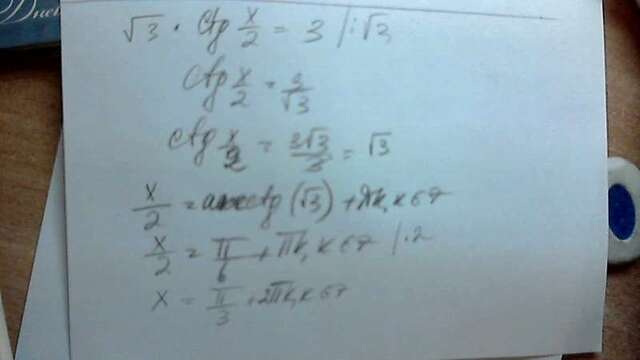 Dnev
√3 · ctg x/2 = 3 |:√3
ctg x/2 = 3/√3
ctg x/2 = 3√3/3 = √3
x/2 = arcctg (√3) + πk, k∈Z
x/2 = π/6 + πk, k∈Z |·2
x = π/3 + 2πk, k∈Z